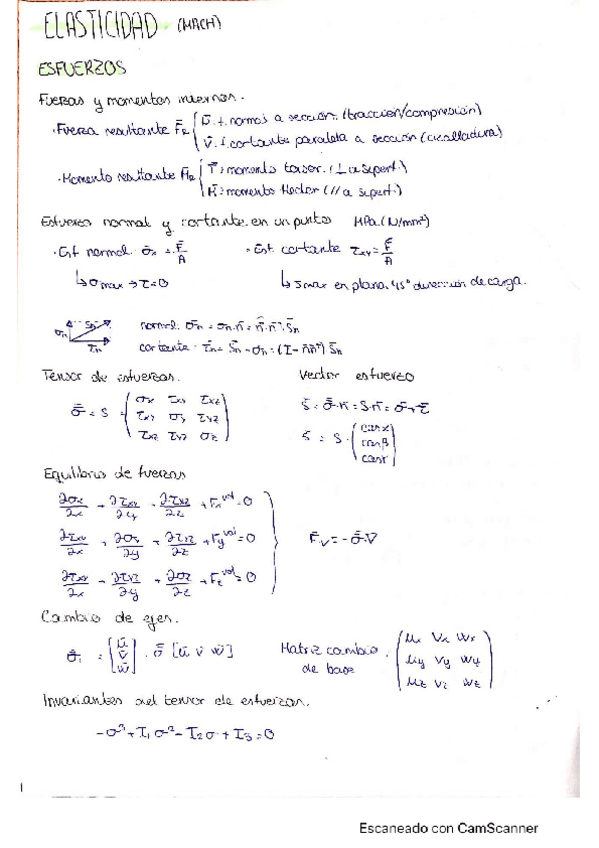 ELASTICIDAD (MACH)
ESFUERZOS
Fuerzas y momentos internos.
· Fuerza resultante F̄R { N̄: ⊥ normal a sección. (tracción/compresión)
V̄: cortante paralela a sección (cizalladura)
· Momento resultante M̄R { T̄: momento torsor. (⊥ a superf.)
M̄: momento flector (// a superf.)
Esfuerzo normal y cortante en un punto MPa (N/mm²)
· Esf normal: σx = F/A · Esf. cortante τxy = F/A
↳ σmax → τ=0 ↳ τmax en plano 45° dirección de carga.
σn Sn τn normal: σ̄n = σn·n̄ = n̄·n̄ᵀ·S̄n
cortante: τ̄n = S̄n - σn = (I - n̄n̄ᵀ) S̄n
Tensor de esfuerzos. Vector esfuerzo
σ̄ = S = ( σx τxy τxz S̄ = σ̄·n̄ = S·n̄ = σ̄+τ̄
τxy σy τyz
τxz τyz σz ) S̄ = S · ( cosα cosβ cosγ )
Equilibrio de fuerzas
∂σx/∂x + ∂τxy/∂y + ∂τxz/∂z + Fx^vol = 0
∂τxy/∂x + ∂σy/∂y + ∂τyz/∂z + Fy^vol = 0 F̄v = -σ̄·∇
∂τxz/∂x + ∂τyz/∂y + ∂σz/∂z + Fz^vol = 0
Cambio de ejes.
σ̄1 = [ ū v̄ w̄ ] · σ̄ [ū v̄ w̄] Matriz cambio de base : ( ux vx wx
uy vy wy
uz vz wz )
Invariantes del tensor de esfuerzos.
-σ³ + I₁σ² - I₂σ + I₃ = 0
1
Escaneado con CamScanner